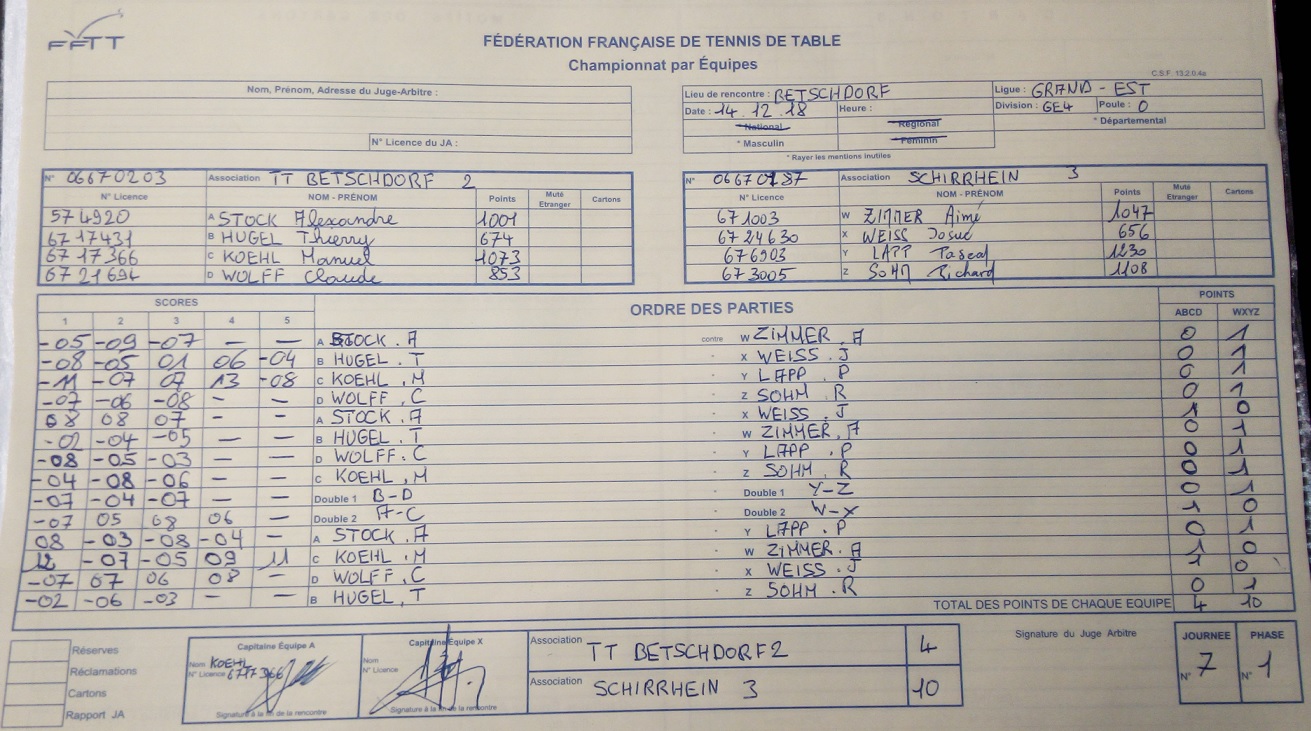 FFTT
FÉDÉRATION FRANÇAISE DE TENNIS DE TABLE
Championnat par Équipes
C.S.F. 13.2.0.4e
Nom, Prénom, Adresse du Juge-Arbitre :
N° Licence du JA :
Lieu de rencontre : BETSCHDORF Ligue : GRAND - EST
Date : 14.12.18 Heure : Division : GE4 Poule : 0
* National * Régional * Départemental
* Masculin * Féminin
* Rayer les mentions inutiles
N° 06670203 Association TT BETSCHDORF 2
N° Licence NOM - PRÉNOM Points Muté Etranger Cartons
574920 A STOCK Alexandre 1001
6717431 B HUGEL Thierry 674
6717366 C KOEHL Manuel 1073
6721694 D WOLFF Claude 853
N° Association SCHIRRHEIN 3
N° Licence NOM - PRÉNOM Points Muté Etranger Cartons
671003 W ZIMMER Aimé 1047
6724630 X WEISS Josué 656
676903 Y LAPP Pascal 1230
673005 Z SOHM Richard 1108
SCORES ORDRE DES PARTIES POINTS
1 2 3 4 5 ABCD WXYZ
-05 -09 -07 — — A STOCK . A contre W ZIMMER . A 0 1
-08 -05 01 06 -04 B HUGEL . T X WEISS . J 0 1
-11 -07 07 13 -08 C KOEHL . M Y LAPP . P 0 1
-07 -06 -08 - - D WOLFF . C Z SOHM . R 0 1
08 08 07 - - A STOCK . A X WEISS . J 1 0
-02 -04 -05 — — B HUGEL . T W ZIMMER . A 0 1
-08 -05 -03 — — D WOLFF . C Y LAPP . P 0 1
-04 -08 -06 — — C KOEHL , M Z SOHM . R 0 1
-07 -04 -07 — — Double 1 B-D Double 1 Y-Z 0 1
-07 05 08 06 — Double 2 A-C Double 2 W-X 1 0
08 -03 -08 -04 - A STOCK . A Y LAPP . P 0 1
12 -07 -05 09 11 C KOEHL . M W ZIMMER . A 1 0
-07 07 06 08 - D WOLFF . C X WEISS . J 1 0
-02 -06 -03 — — B HUGEL , T Z SOHM . R 0 1
TOTAL DES POINTS DE CHAQUE EQUIPE 4 10
Réserves
Réclamations
Cartons
Rapport JA
Capitaine Équipe A
Nom KOEHL
N° Licence 6717366
Signature à la fin de la rencontre
Capitaine Équipe X
Nom
N° Licence
Signature à la fin de la rencontre
Association TT BETSCHDORF 2 4
Association SCHIRRHEIN 3 10
Signature du Juge Arbitre
JOURNEE N° 7
PHASE N° 1